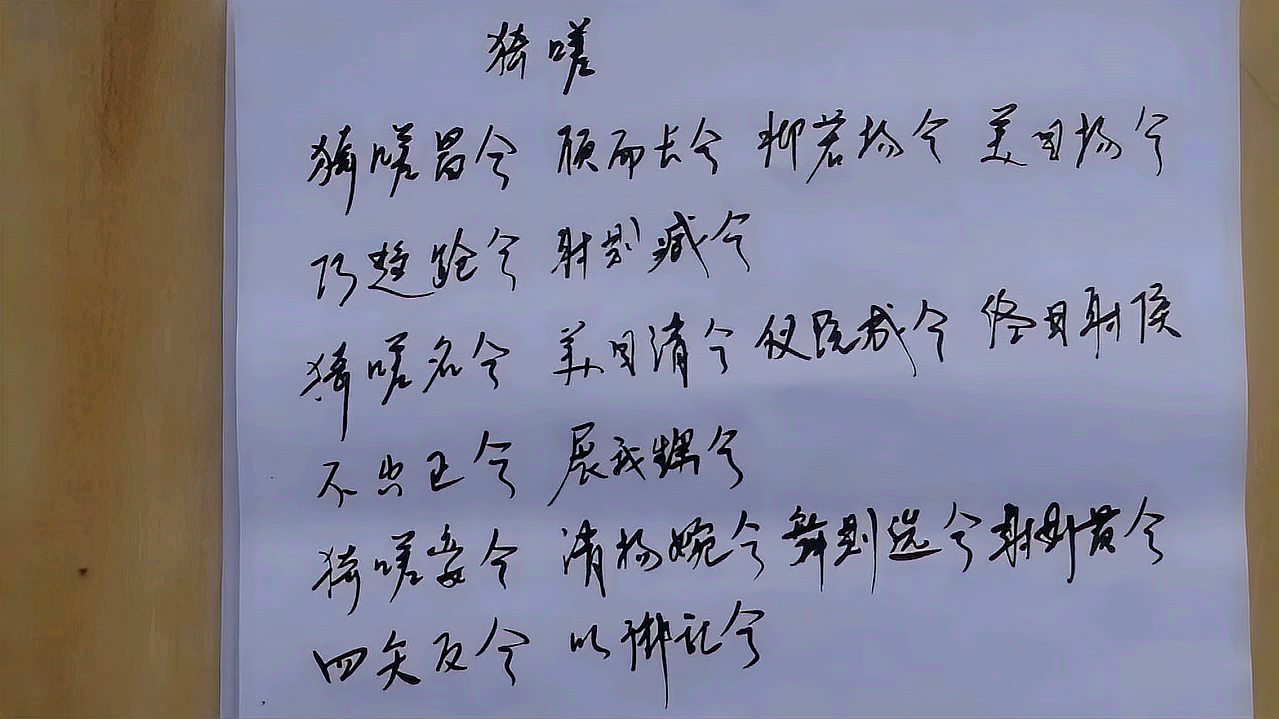 猗嗟
猗嗟昌兮 颀而长兮 抑若扬兮 美目扬兮
巧趋跄兮 射则臧兮
猗嗟名兮 美目清兮 仪既成兮 终日射侯
不出正兮 展我甥兮
猗嗟娈兮 清扬婉兮 舞则选兮 射则贯兮
四矢反兮 以御乱兮